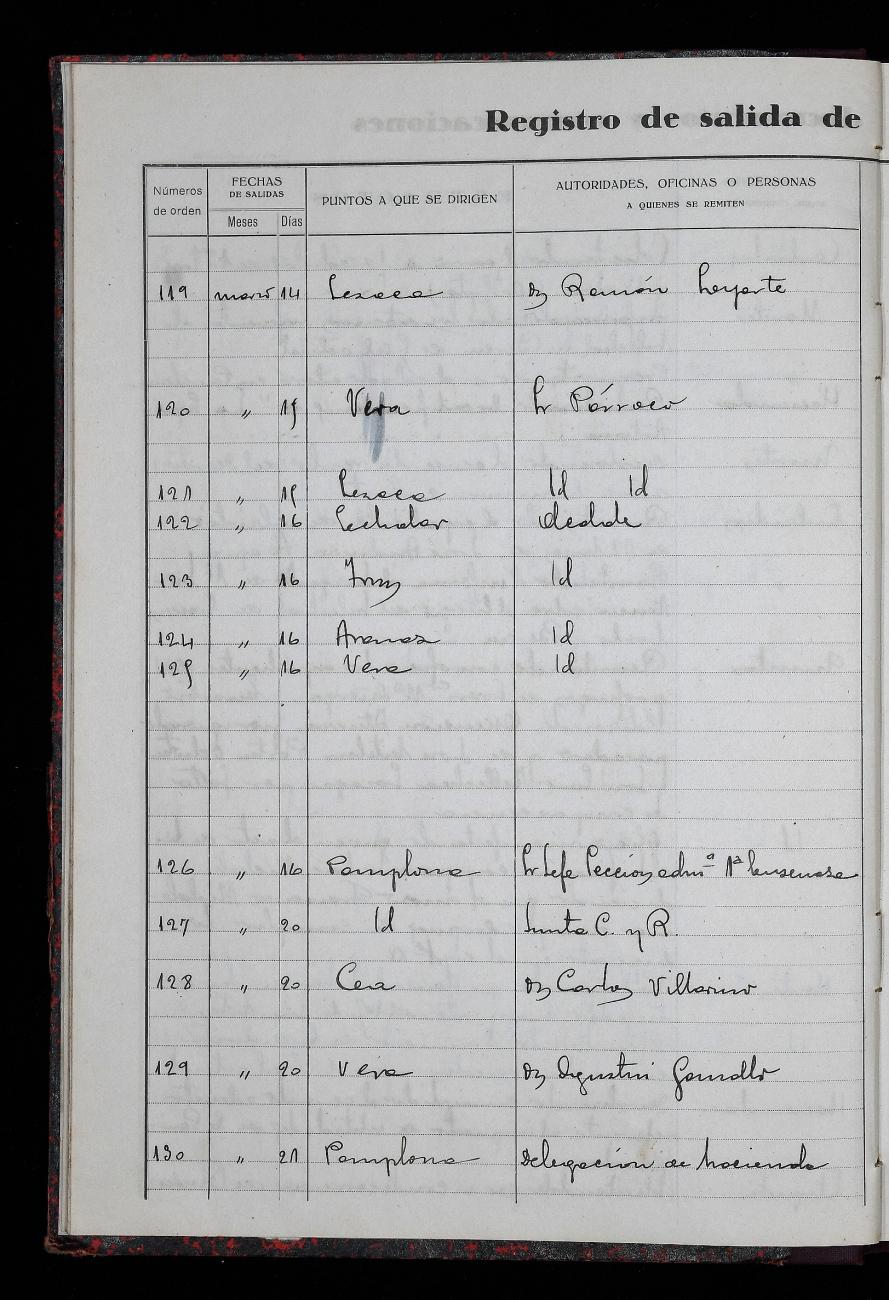 Registro de salida de
Números de orden
FECHAS DE SALIDAS
Meses Días
PUNTOS A QUE SE DIRIGEN
AUTORIDADES, OFICINAS O PERSONAS
A QUIENES SE REMITEN
119 marzo 14 Lesaca Dn Ramón
120 " 15 Vera Sr Párroco
121 " 15 Lesaca Id Id
122 " 16 Echalar Alcalde
123 " 16 Irun Id
124 " 16 Aranaz Id
125 " 16 Vera Id
126 " 16 Pamplona Sr Jefe Seccion admª 1ª Ensenanza
127 " 20 Id Junta C. y R.
128 " 20 Dn Carlos Villarino
129 " 20 Vera Dn Agustin Gamallo
130 " 21 Pamplona Delegacion de hacienda